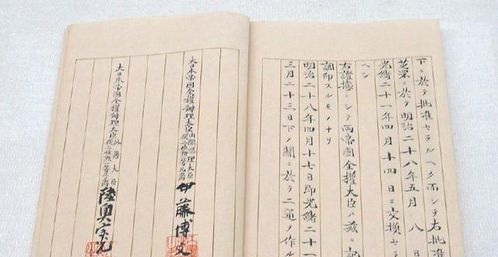 下ニ於テ批准セラルヘク而シテ右批准
芝罘ニ於テ明治二十八年五月八日
光緒二十一年四月十四日ニ交換セラ
ヘシ
右證據トシテ両帝國全權大臣ハ茲ニ記
調印スルモノナリ
明治二十八年四月十七日即光緒二十一
三月二十三日下ノ關ニ於テ二通ヲ作ル
大日本帝國全權辦理大臣
伊藤博文
大日本帝國全權辦理大臣
陸奥宗光